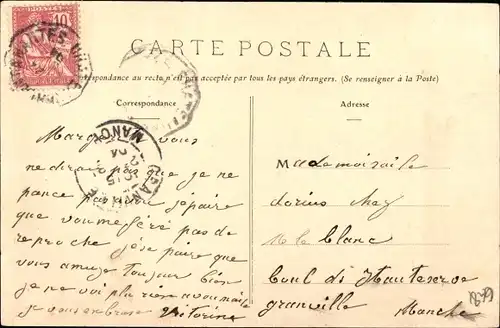 10
CARTE POSTALE
Correspondance au recto n'est pas acceptée par tous les pays étrangers. (Se renseigner à la Poste)
Correspondance
Adresse
MANCHE
vous
ne dirai pas que je ne
pance pas a vous j'espaire
que vous me féré pas de
reproche j'éspaire que
vous amuze toujour bien
je ne voi plu rien a vous
je vous enbrase Victorine
Mademoiselle
dorius chez
Mr leblanc
boul di Hauteserve
granville
Manche